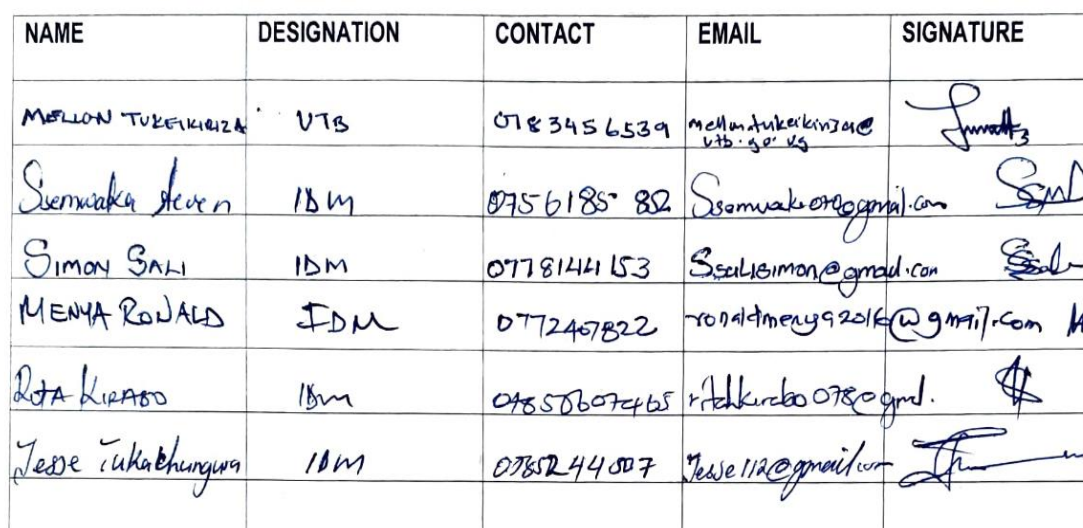 NAME DESIGNATION CONTACT EMAIL SIGNATURE
MELLON TUKEIKIRIZA UTB 0783456539 mellontukeikiriza@
utb.go.ug
Ssemwaka Steven IDM 0756185852
Simon SALI IDM 0778144153 Ssalisimon@gmail.com
MENYA RONALD IDM 0772467822 ronaldmenya2016@gmail.com
RITA KIRABO IDM
Jesse Tukachungwa IDM Jesse112@gmail.com